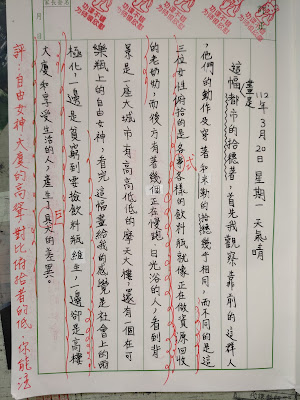 112年3月20日 星期一 天氣晴
畫是
這幅都市的拾穗者,首先我觀察最前的這群人
,他們的動作及穿著和米勒的拾穗幾乎相同,而不同的是這
三位女性俯拾的是各式各樣的飲料瓶就像正在做資源回收
的老奶奶,而後方有著幾個正在慢跑、日光浴的人,看到背
景是一座大城市有高高低低的摩天大樓,還有個在可
樂瓶上的自由女神,看完這幅畫給我的感覺是社會上的兩
極化,一邊是貧窮到要撿飲料瓶維生,一邊卻是高樓
大廈和享受生活的人,產生了巨大的差異。
評:自由女神、大廈的高聳對比俯拾者的低,你能法